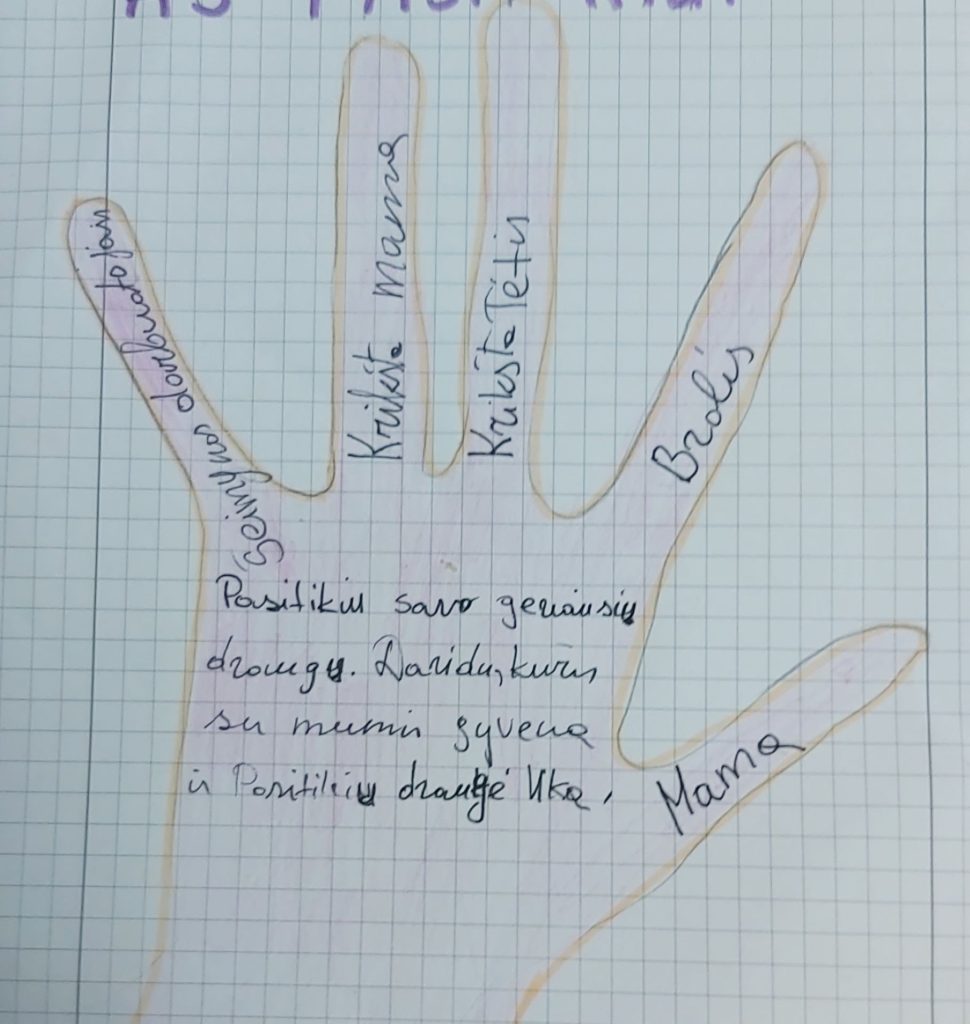 AŠ
Šeimynos darbuotojais
Krikšta mama
KrikštaTėtis
Brolis
Mama
Pasitikiu savo geriausiu
draugu. Daridu, kuris
su mumis gyvena
ir Pasitikiu drauge Uka,